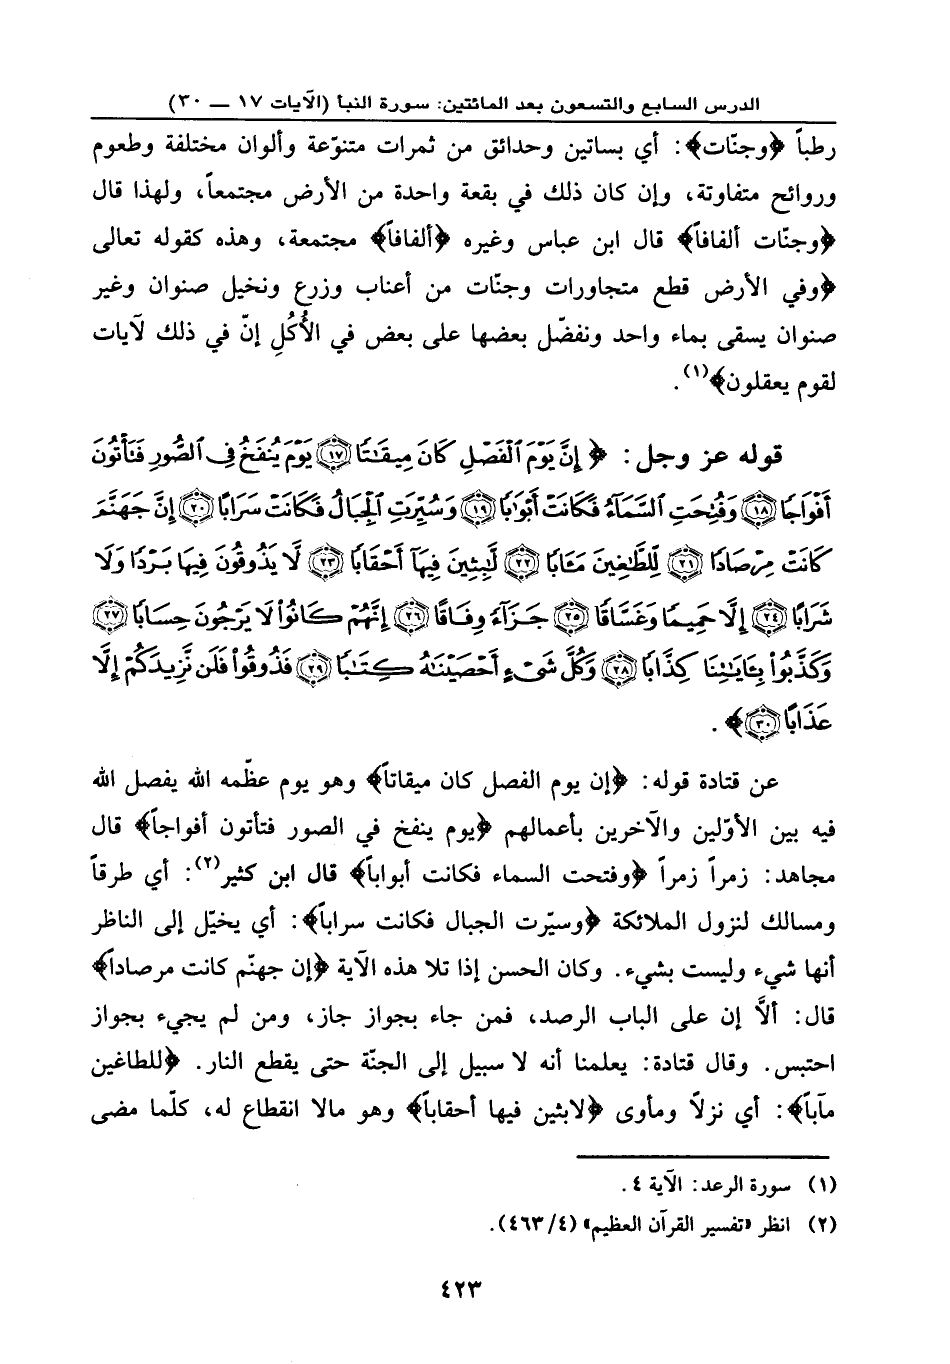 الدرس السابع والتسعون بعد المائتين: سورة النبأ (الآيات ١٧ ــ ٣٠)
رطباً ﴿وجنّات﴾: أي بساتين وحدائق من ثمرات متنوّعة وألوان مختلفة وطعوم
وروائح متفاوتة، وإن كان ذلك في بقعة واحدة من الأرض مجتمعاً، ولهذا قال
﴿وجنّات ألفافاً﴾ قال ابن عباس وغيره ﴿ألفافاً﴾ مجتمعة، وهذه كقوله تعالى
﴿وفي الأرض قطع متجاورات وجنّات من أعناب وزرع ونخيل صنوان وغير
صنوان يسقى بماء واحد ونفضّل بعضها على بعض في الأُكُلِ إنّ في ذلك لآيات
لقوم يعقلون﴾(١).
قوله عز وجل: ﴿ إِنَّ يَوْمَ ٱلْفَصْلِ كَانَ مِيقَٰتًا ١٧ يَوْمَ يُنفَخُ فِى ٱلصُّورِ فَتَأْتُونَ
أَفْوَاجًا ١٨ وَفُتِحَتِ ٱلسَّمَآءُ فَكَانَتْ أَبْوَٰبًا ١٩ وَسُيِّرَتِ ٱلْجِبَالُ فَكَانَتْ سَرَابًا ٢٠ إِنَّ جَهَنَّمَ
كَانَتْ مِرْصَادًا ٢١ لِّلطَّٰغِينَ مَـَٔابًا ٢٢ لَّٰبِثِينَ فِيهَآ أَحْقَابًا ٢٣ لَّا يَذُوقُونَ فِيهَا بَرْدًا وَلَا
شَرَابًا ٢٤ إِلَّا حَمِيمًا وَغَسَّاقًا ٢٥ جَزَآءً وِفَاقًا ٢٦ إِنَّهُمْ كَانُوا۟ لَا يَرْجُونَ حِسَابًا ٢٧
وَكَذَّبُوا۟ بِـَٔايَٰتِنَا كِذَّابًا ٢٨ وَكُلَّ شَىْءٍ أَحْصَيْنَٰهُ كِتَٰبًا ٢٩ فَذُوقُوا۟ فَلَن نَّزِيدَكُمْ إِلَّا
عَذَابًا ٣٠﴾.
عن قتادة قوله: ﴿إن يوم الفصل كان ميقاتاً﴾ وهو يوم عظّمه الله يفصل الله
فيه بين الأوّلين والآخرين بأعمالهم ﴿يوم ينفخ في الصور فتأتون أفواجاً﴾ قال
مجاهد: زمراً زمراً ﴿وفتحت السماء فكانت أبواباً﴾ قال ابن كثير(٢): أي طرقاً
ومسالك لنزول الملائكة ﴿وسيّرت الجبال فكانت سراباً﴾: أي يخيّل إلى الناظر
أنها شيء وليست بشيء. وكان الحسن إذا تلا هذه الآية ﴿إن جهنّم كانت مرصاداً﴾
قال: ألَّا إن على الباب الرصد، فمن جاء بجواز جاز، ومن لم يجيء بجواز
احتبس. وقال قتادة: يعلمنا أنه لا سبيل إلى الجنّة حتى يقطع النار. ﴿للطاغين
مآباً﴾: أي نزلاً ومأوى ﴿لابثين فيها أحقاباً﴾ وهو مالا انقطاع له، كلّما مضى
(١) سورة الرعد: الآية ٤.
(٢) انظر «تفسير القرآن العظيم» (٤/ ٤٦٣).
٤٢٣